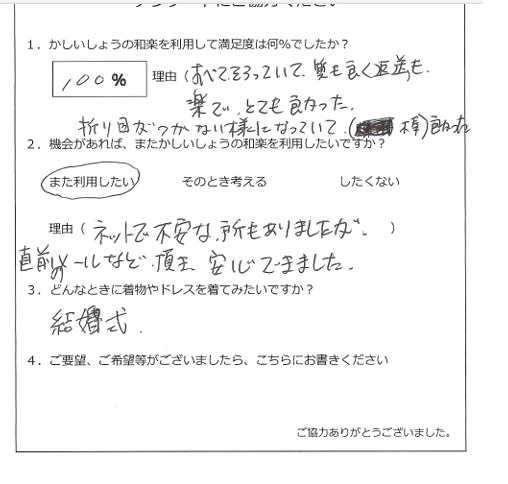 アンケートにご協力ください
1．かしいしょうの和楽を利用して満足度は何%でしたか？
100% 理由（すべてそろっていて、質も良く返送も、
楽で、とても良かった。
折り目がつかない様になっていて、（棒）良かった
2．機会があれば、またかしいしょうの和楽を利用したいですか？
また利用したい そのとき考える したくない
理由（ネットで不安な、所もありましたが、）
直前のメールなど頂き、安心できました。
3．どんなときに着物やドレスを着てみたいですか？
結婚式．
4．ご要望、ご希望等がございましたら、こちらにお書きください
ご協力ありがとうございました。